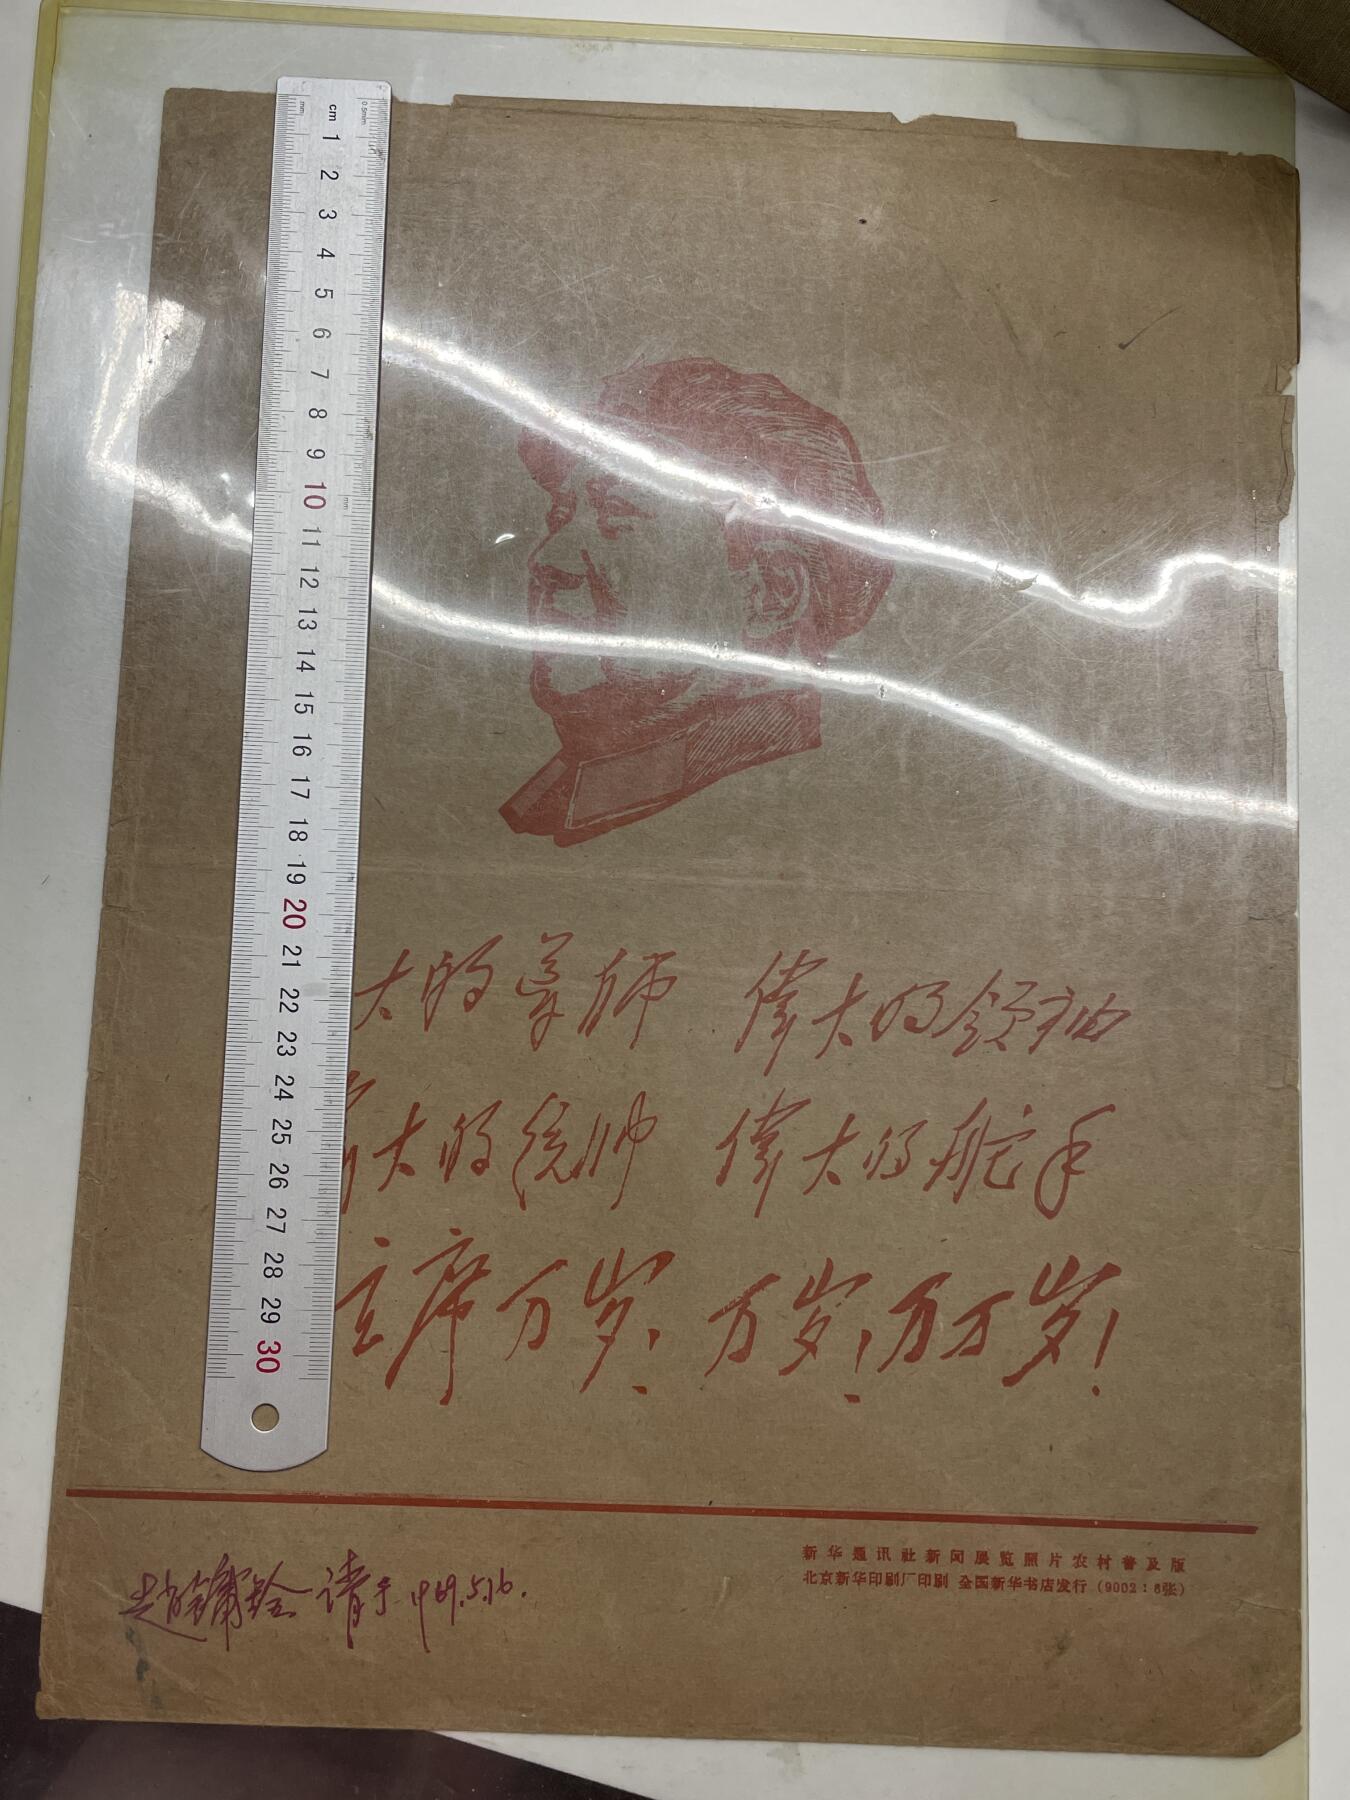 cm 1 2 3 4 5 6 7 8 9 10 11 12 13 14 15 16 17 18 19 20 21 22 23 24 25 26 27 28 29 30
mm
0.5mm
mm
大的导师 偉大的领袖
大的统帅 偉大的舵手
主席万岁！万岁！万万岁！
新华通讯社新闻展览照片农村普及版
北京新华印刷厂印刷 全国新华书店发行（9002：8张）
请于1969.5.16.